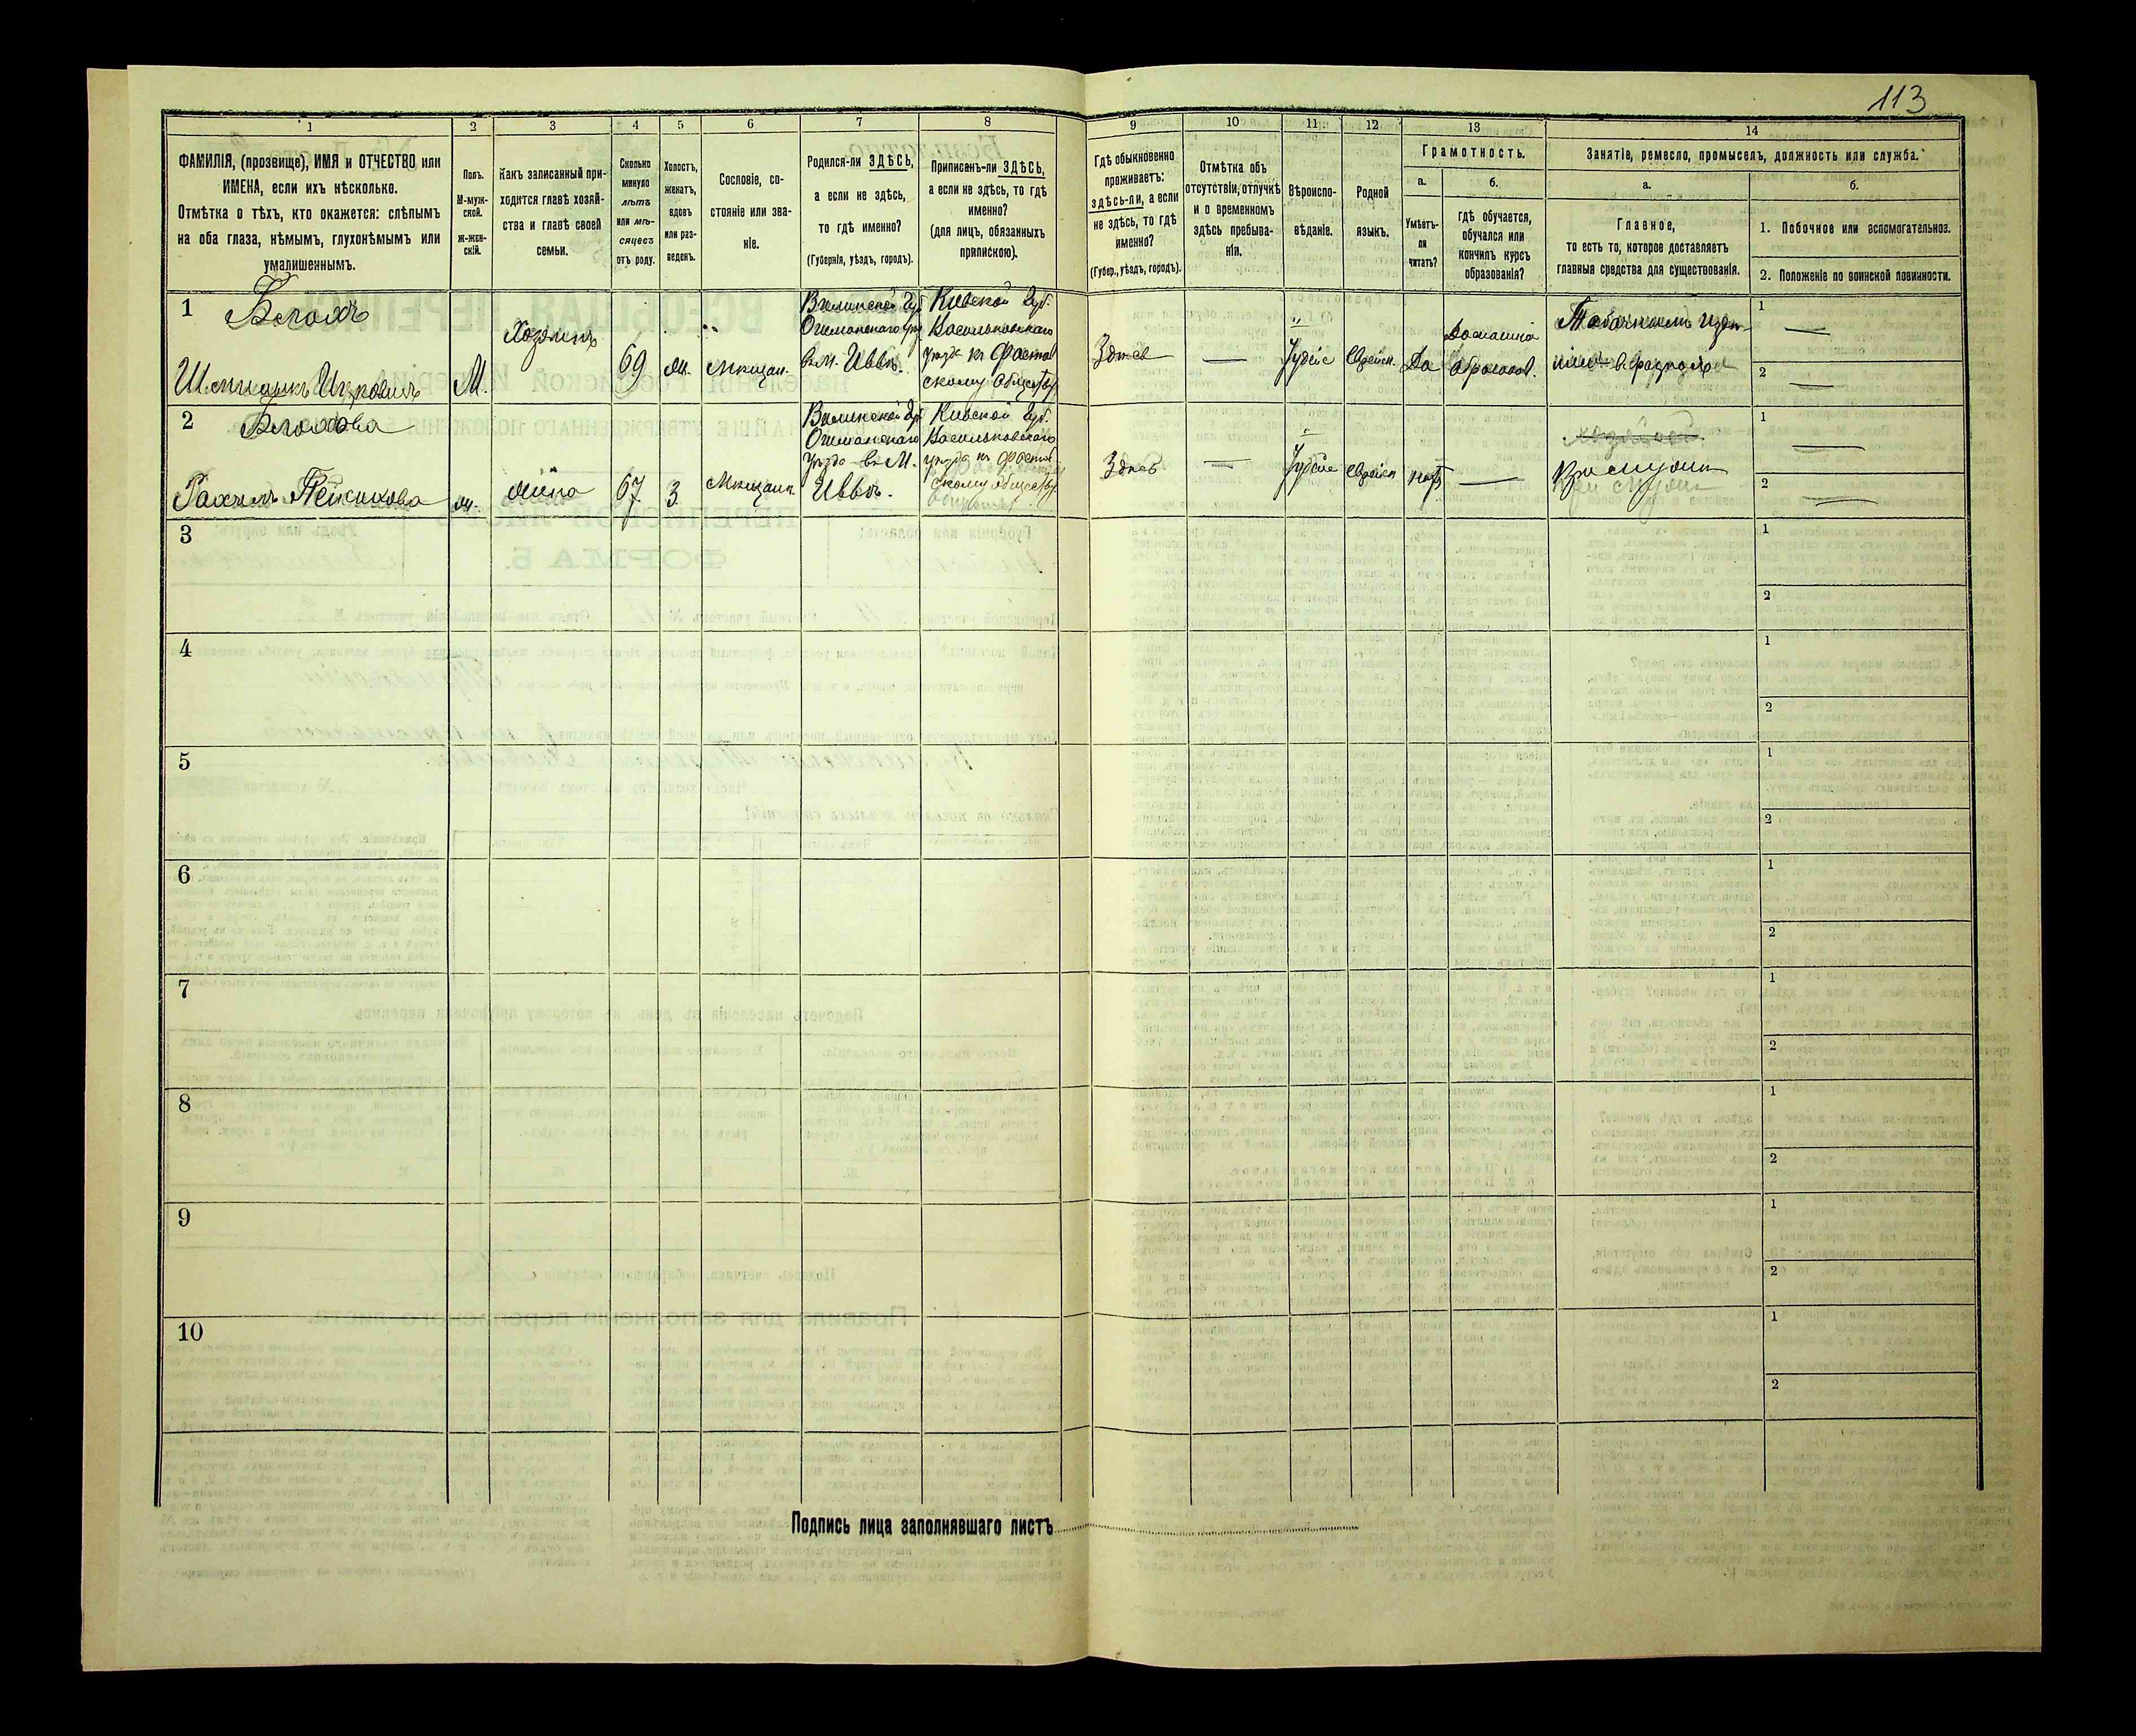 113
1 2 3 4 5 6 7 8 9 10 11 12 13 14
ФАМИЛІЯ, (прозвище), ИМЯ и ОТЧЕСТВО или
ИМЕНА, если ихъ нѣсколько.
Отмѣтка о тѣхъ, кто окажется: слѣпымъ
на оба глаза, нѣмымъ, глухонѣмымъ или
умалишеннымъ.
Полъ.
М-муж-
ской.
Ж-жен-
скій.
Какъ записанный при-
ходится главѣ хозяй-
ства и главѣ своей
семьи.
Сколько
минуло
лѣтъ
или мѣ-
сяцевъ
отъ роду.
Холостъ,
женатъ,
вдовъ
или раз-
веденъ.
Сословіе, со-
стояніе или зва-
ніе.
Родился-ли ЗДѢСЬ,
а если не здѣсь,
то гдѣ именно?
(Губернія, уѣздъ, городъ).
Приписанъ-ли ЗДѢСЬ,
а если не здѣсь, то гдѣ
именно?
(для лицъ, обязанныхъ
припискою).
Гдѣ обыкновенно
проживаетъ:
здѣсь-ли, а если
не здѣсь, то гдѣ
именно?
(Губер., уѣздъ, городъ).
Отмѣтка объ
отсутствіи, отлучкѣ
и о временномъ
здѣсь пребыва-
ніи.
Вѣроиспо-
вѣданіе.
Родной
языкъ.
Грамотность.
а.
Умѣетъ-
ли
читать?
б.
гдѣ обучается,
обучался или
кончилъ курсъ
образованія?
Занятіе, ремесло, промыселъ, должность или служба.
а.
Главное,
то есть то, которое доставляетъ
главныя средства для существованія.
б.
1. Побочное или вспомогательное.
2. Положеніе по воинской повинности.
1
Блохъ
Ицковичъ
М.
Хозяинъ
69
ж.
мѣщан.
Виленской Губ
Ошмянскаго уѣз
въ м. Ивьѣ.
Кіевской Губ.
Васильковскаго
уѣзда къ Фастов
скому обществу
Здѣсь
—
Іудейс
Еврейск.
Да
Домашнія
образов.
Табачныхъ издѣ-
въ
1
—
2
—
2
Блохова
Рахиль
ж.
жена
67
З
мѣщанк.
Виленской Губ
Ошмянскаго
уѣзда въ М.
Ивьѣ.
Кіевской Губ.
Васильковскаго
уѣзда къ Фастов
скому обществу
Здѣсь
—
Іудейс
Еврейск
нѣтъ
—
При мужѣ
1
—
2
—
3
1
2
4
1
2
5
1
2
6
1
2
7
1
2
8
1
2
9
1
2
10
1
2
Подпись лица заполнявшаго листъ